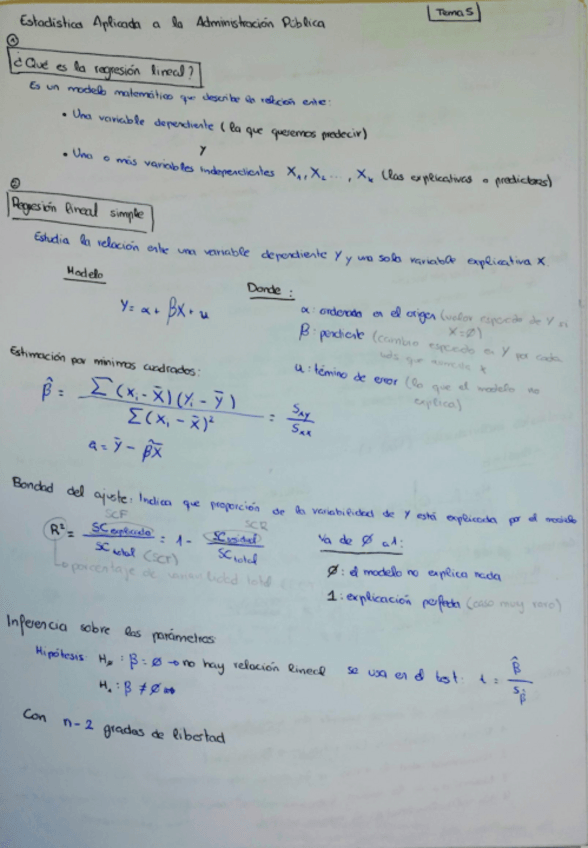 Estadística Aplicada a la Administración Pública
Tema 5
①
¿Qué es la regresión lineal?
Es un modelo matemático que describe la relación entre:
• Una variable dependiente (la que queremos predecir)
Y
• Una o más variables independientes X₁, X₂ ..., Xₖ (las explicativas o predictoras)
②
Regresión lineal simple
Estudia la relación entre una variable dependiente Y y una sola variable explicativa X
Modelo
Donde:
Y = α + βX + u
α: ordenada en el origen (valor esperado de Y si X=Ø)
β: pendiente (cambio esperado en Y por cada
más que aumenta x
u: término de error (lo que el modelo no
explica)
Estimación por mínimos cuadrados:
β̂ = Σ(xᵢ - x̄)(yᵢ - ȳ) / Σ(xᵢ - x̄)² = Sxy / Sxx
a = ȳ - β̂x̄
Bondad del ajuste: Indica que proporción de la variabilidad de Y está explicada por el modelo
SCR
R² = SC explicada / SC total = 1 - SC residual / SC total
porcentaje de variabilidad total
Va de Ø a 1:
Ø: el modelo no explica nada
1: explicación perfecta (caso muy raro)
Inferencia sobre los parámetros
Hipótesis: H₀: β = Ø → no hay relación lineal
se usa en el test: t = β̂ / S β̂
H₁: β ≠ Ø
Con n-2 grados de libertad